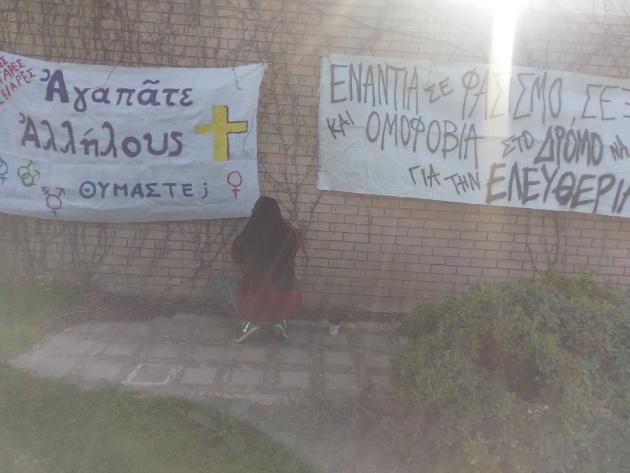 Ἀγαπᾶτε
Ἀλλήλους
ΘΥΜΑΣΤΕ;
ΕΝΑΝΤΙΑ ΣΕ ΦΑΣΙΣΜΟ,
ΚΑΙ ΟΜΟΦΟΒΙΑ ΣΤΟ ΔΡΟΜΟ
ΓΙΑ ΤΗΝ ΕΛΕΥΘΕΡΙΑ